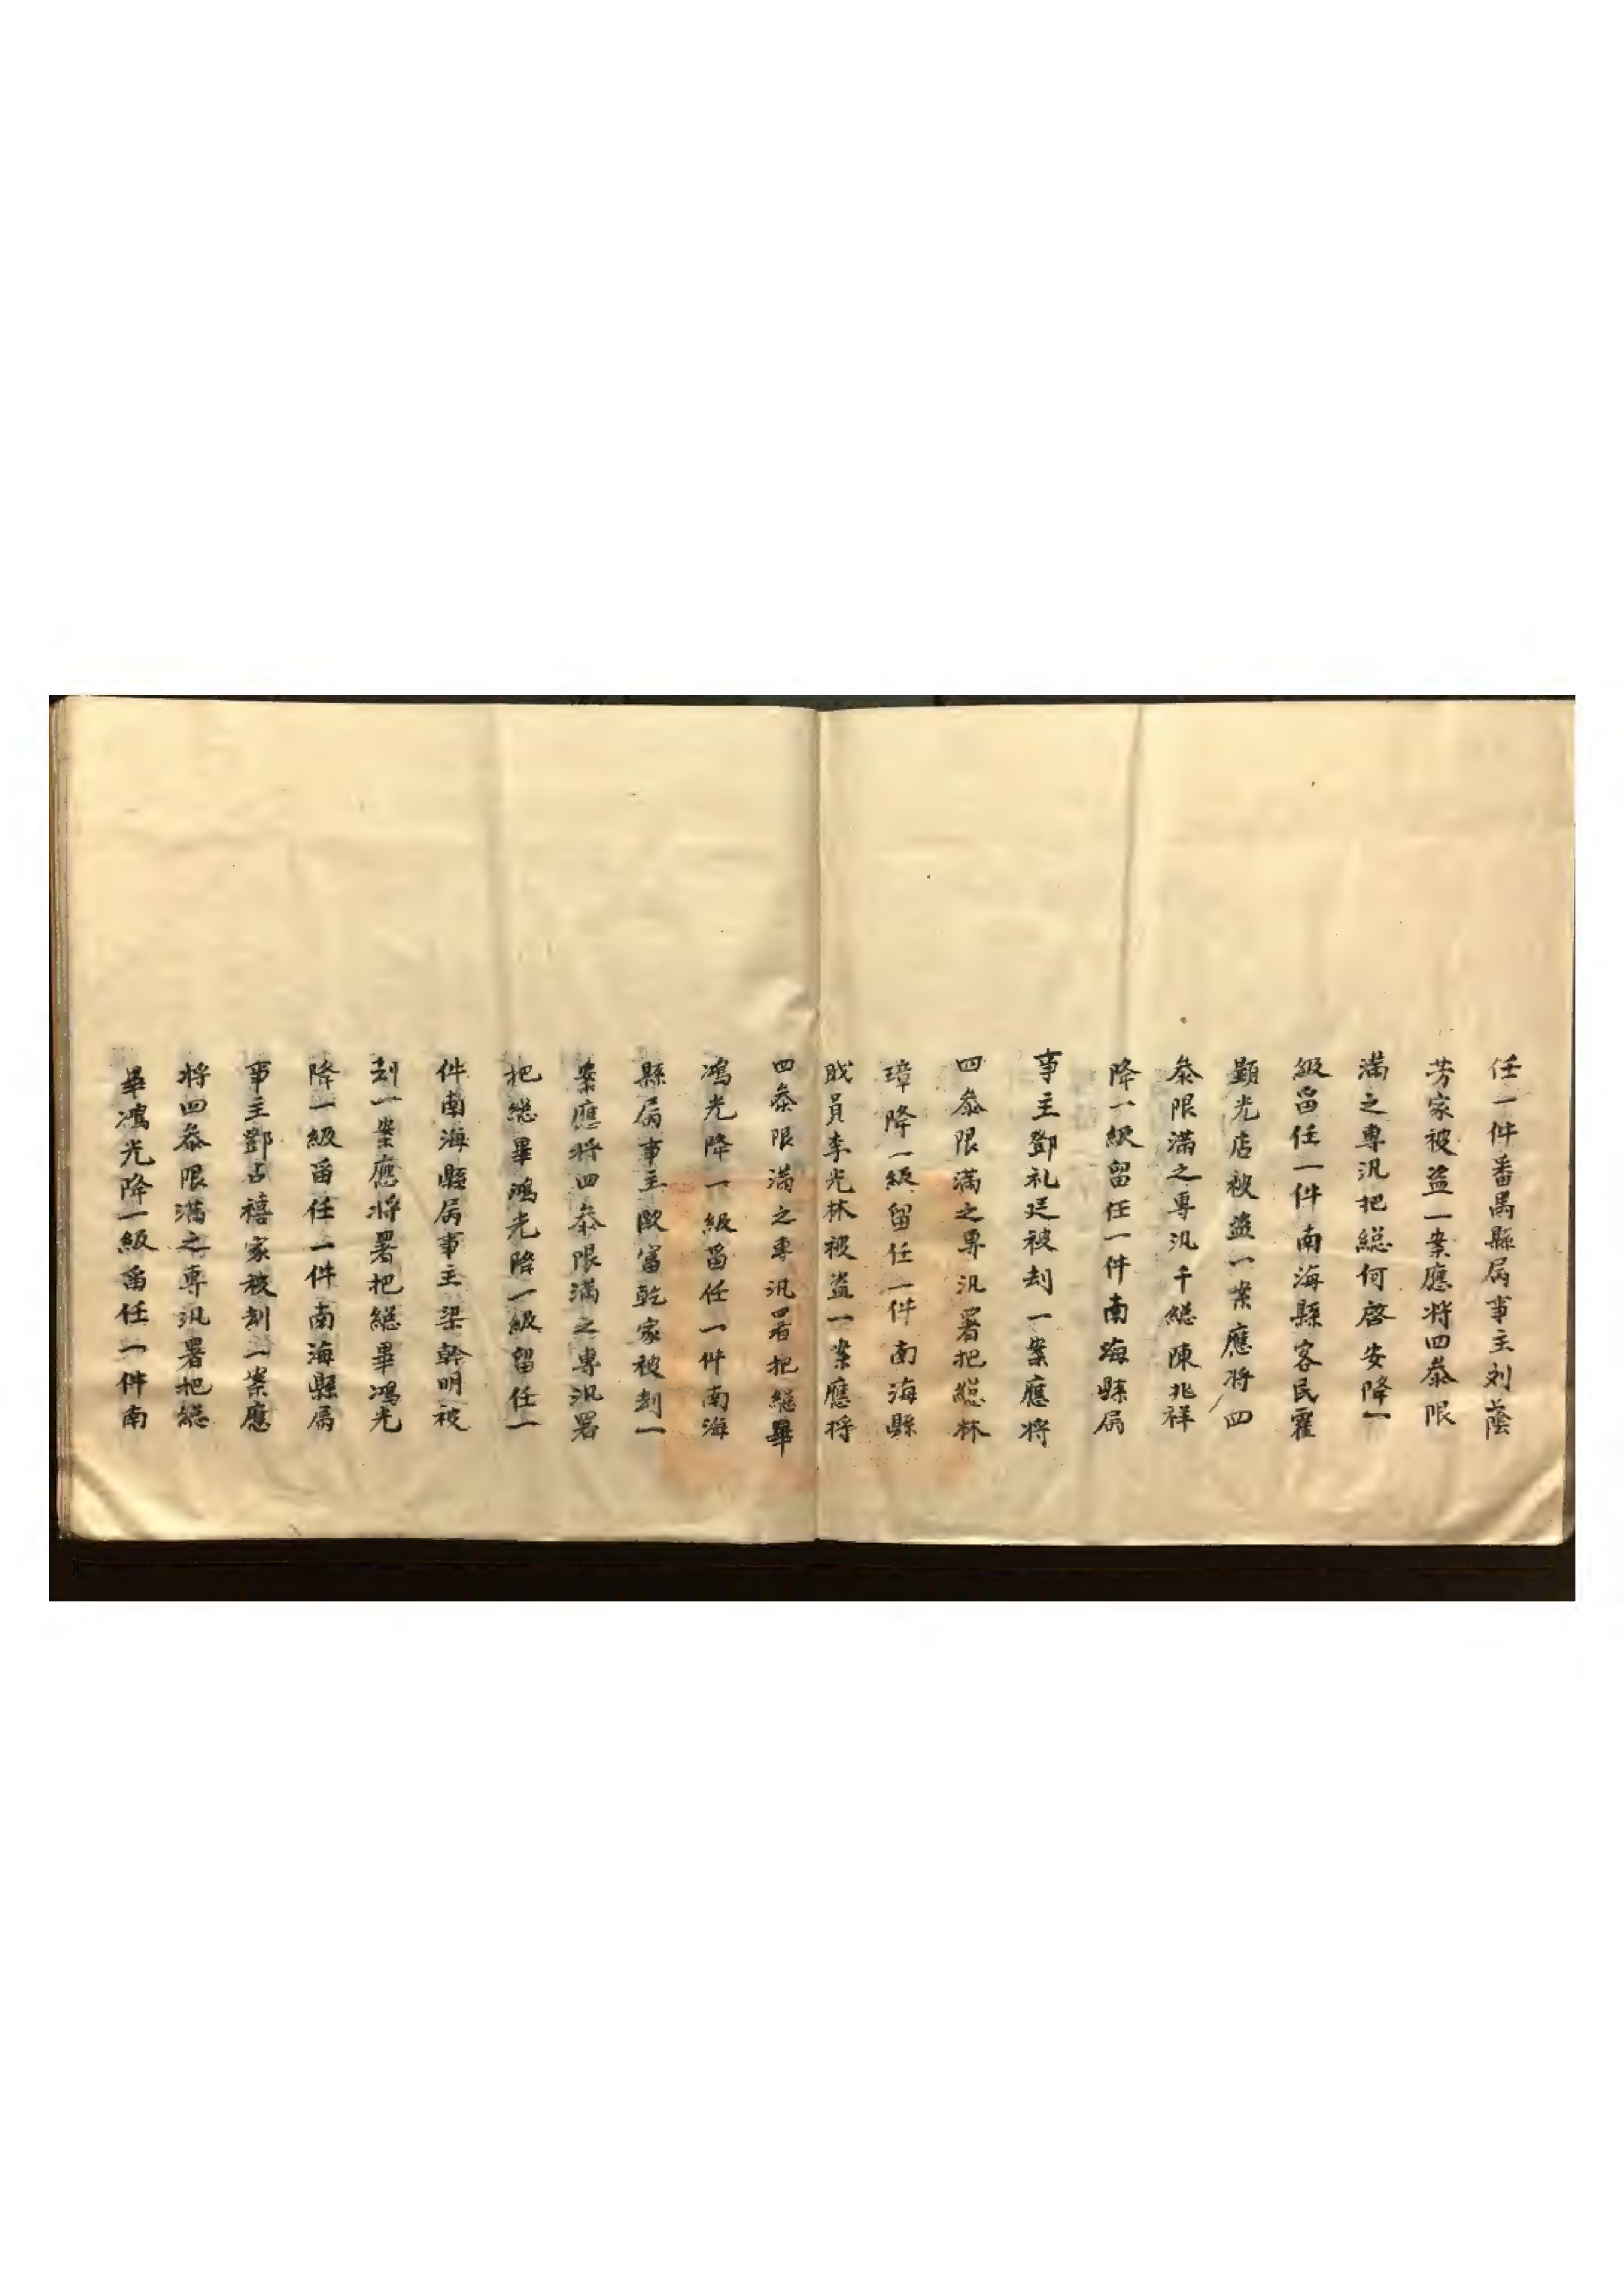 任一件番禺縣属事主刘蔭
芳家被盗一案應将四叅限
滿之專汛把総何啓安降一
級留任一件南海縣客民霍
顕光店被盗一案應将四
叅限滿之專汛千総陳兆祥
降一級留任一件南海縣属
事主鄧礼廷被刦一案應将
四叅限滿之專汛署把総林
璋降一級留任一件南海縣
戝員李光林被盗一案應将
四叅限滿之專汛署把総畢
鴻光降一級畱任一件南海
縣属事主歐富乾家被刦一
案應将四叅限滿之專汛署
把総畢鴻光降一級留任一
件南海縣属事主梁幹明被
刦一案應将署把総畢鴻光
降一級畱任一件南海縣属
事主鄧吉禧家被刦一案應
将四叅限滿之專汛署把総
畢鴻光降一級畱任一件南